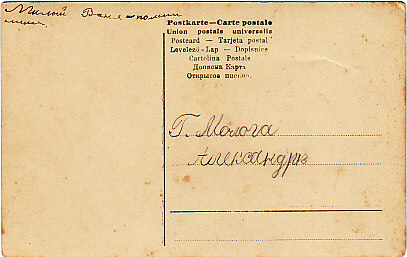 Милый Ваня помни
меня
Postkarte — Carte postale
Union postale universelle
Postcard — Tarjeta postal
Levelező-Lap — Dopisnice
Cartolina Postale
Дописна Карта
Открытое письмо.
Г. Молога
Александри